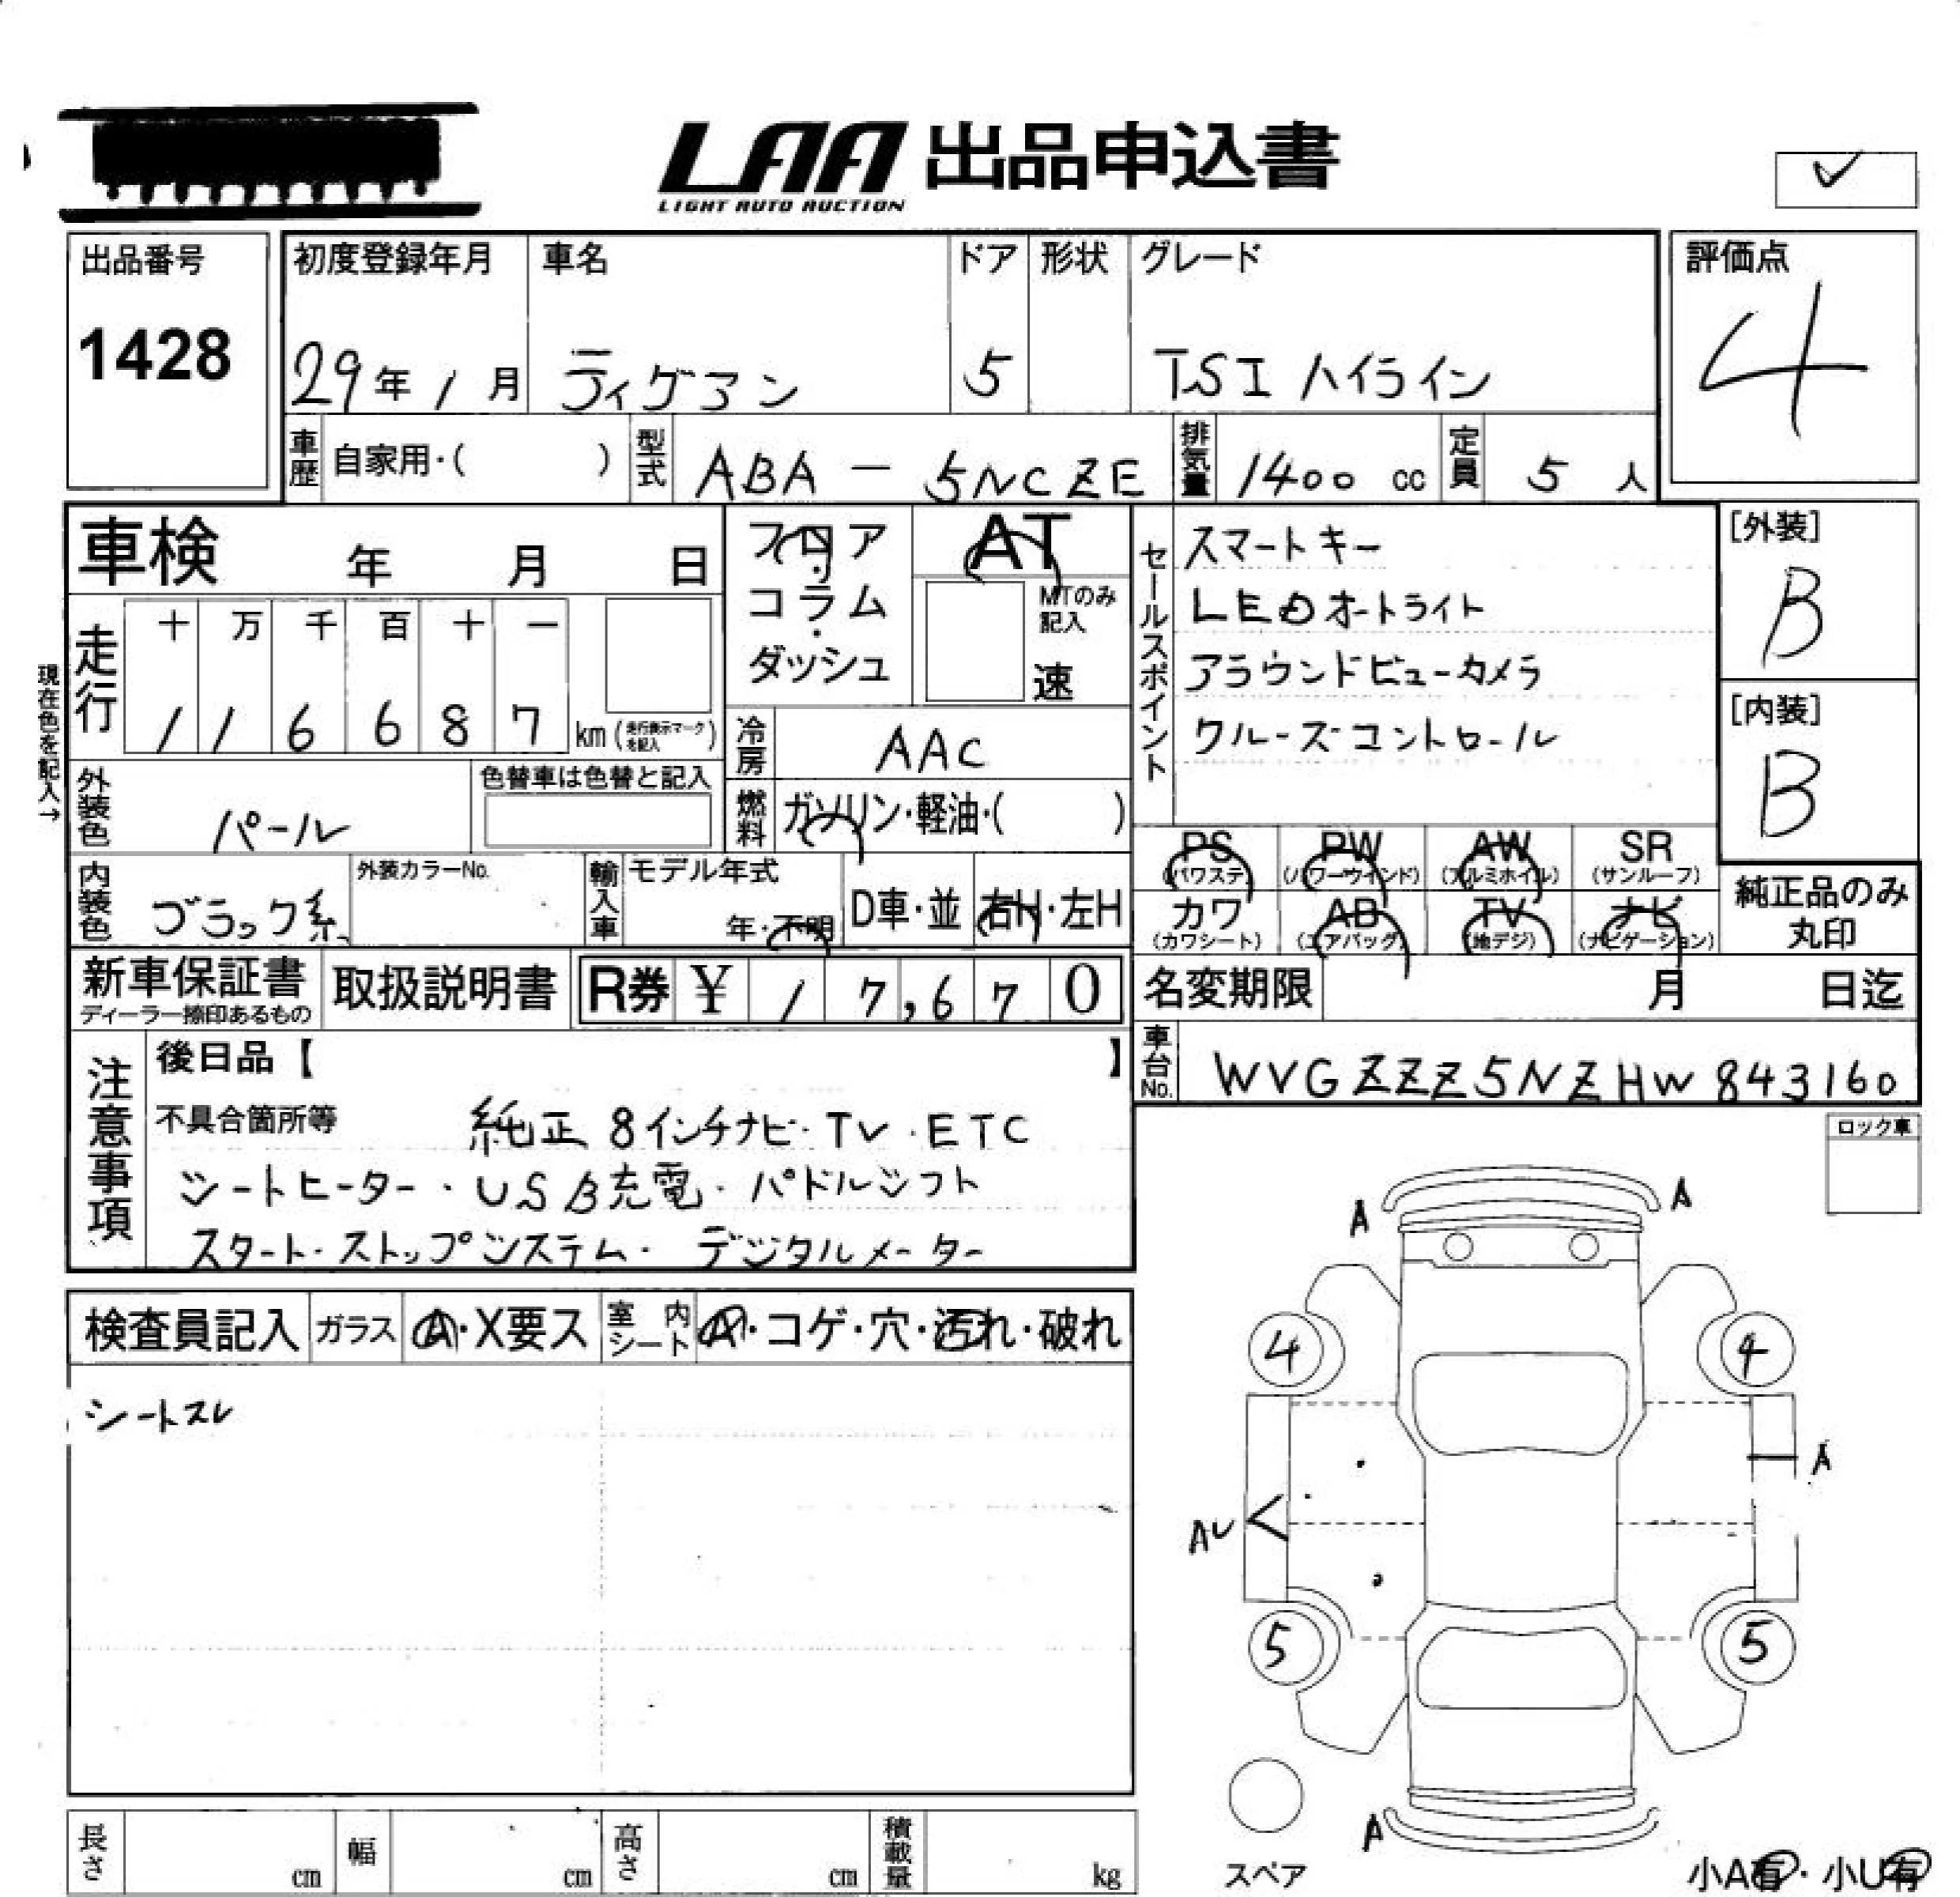 LAA 出品申込書
LIGHT AUTO AUCTION
出品番号
1428
初度登録年月 車名 ドア 形状 グレード
29年1月 ティグアン 5 TSI ハイライン
評価点
4
車歴 自家用・( ) 型式 ABA - 5NCZE 排気量 1400 cc 定員 5 人
車検 年 月 日
フロア・コラム・ダッシュ
AT
MTのみ記入
速
セールスポイント
スマートキー
LEDオートライト
アラウンドビューカメラ
クルーズコントロール
[外装]
B
[内装]
B
現在色を記入→
走行 十 万 千 百 十 一
1 1 6 6 8 7 km (走行表示マークを記入)
冷房 AAC
外装色 パール
色替車は色替と記入
燃料 ガソリン・軽油・( )
内装色 ブラック系
外装カラーNo.
輸入車 モデル年式
年・不明 D車・並 右H・左H
PS (パワステ) PW (パワーウインド) AW (アルミホイル) SR (サンルーフ)
カワ (カワシート) AB (エアバッグ) TV (地デジ) ナビ (ナビゲーション)
純正品のみ
丸印
新車保証書
ディーラー捺印あるもの
取扱説明書 R券 ¥ 1 7,6 7 0
名変期限 月 日迄
車台No. WVGZZZ5NZHW843160
注意事項
後日品【 】
不具合箇所等 純正8インチナビ・TV・ETC
シートヒーター・USB充電・パドルシフト
スタート・ストップシステム・デジタルメーター
ロック車
検査員記入 ガラス A・X要ス 室内シート A・コゲ・穴・汚れ・破れ
シートスレ
A A
4 4
A
AU
5 5
A
スペア
小A有・小U有
長さ cm 幅 cm 高さ cm 積載量 kg